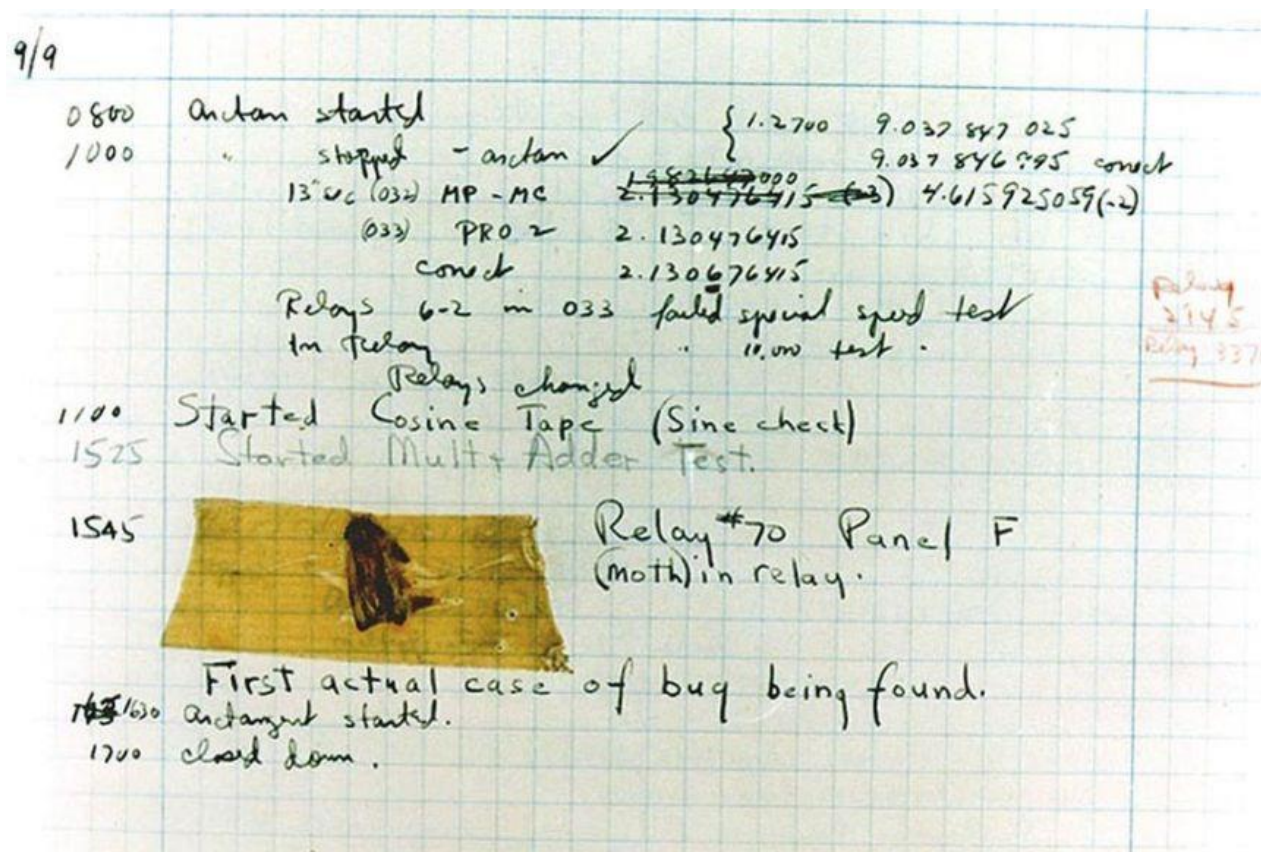 9/9
0800 arctan started { 1.2700 9.037 847 025
1000 " stopped - arctan ✓ 9.037 846 995 correct
13 (032) MP - MC 2.130476415 (-3) 4.615925059(-2)
(033) PRO 2 2.130476415
correct 2.130676415
Relays 6-2 in 033 failed special speed test
In Relay " 10,000 test .
Relays changed
Relay
2145
Relay 337
1100 Started Cosine Tape (Sine check)
1525 Started Mult + Adder Test.
1545 Relay #70 Panel F
(moth) in relay.
First actual case of bug being found.
1630 arctangent started.
1700 closed down.